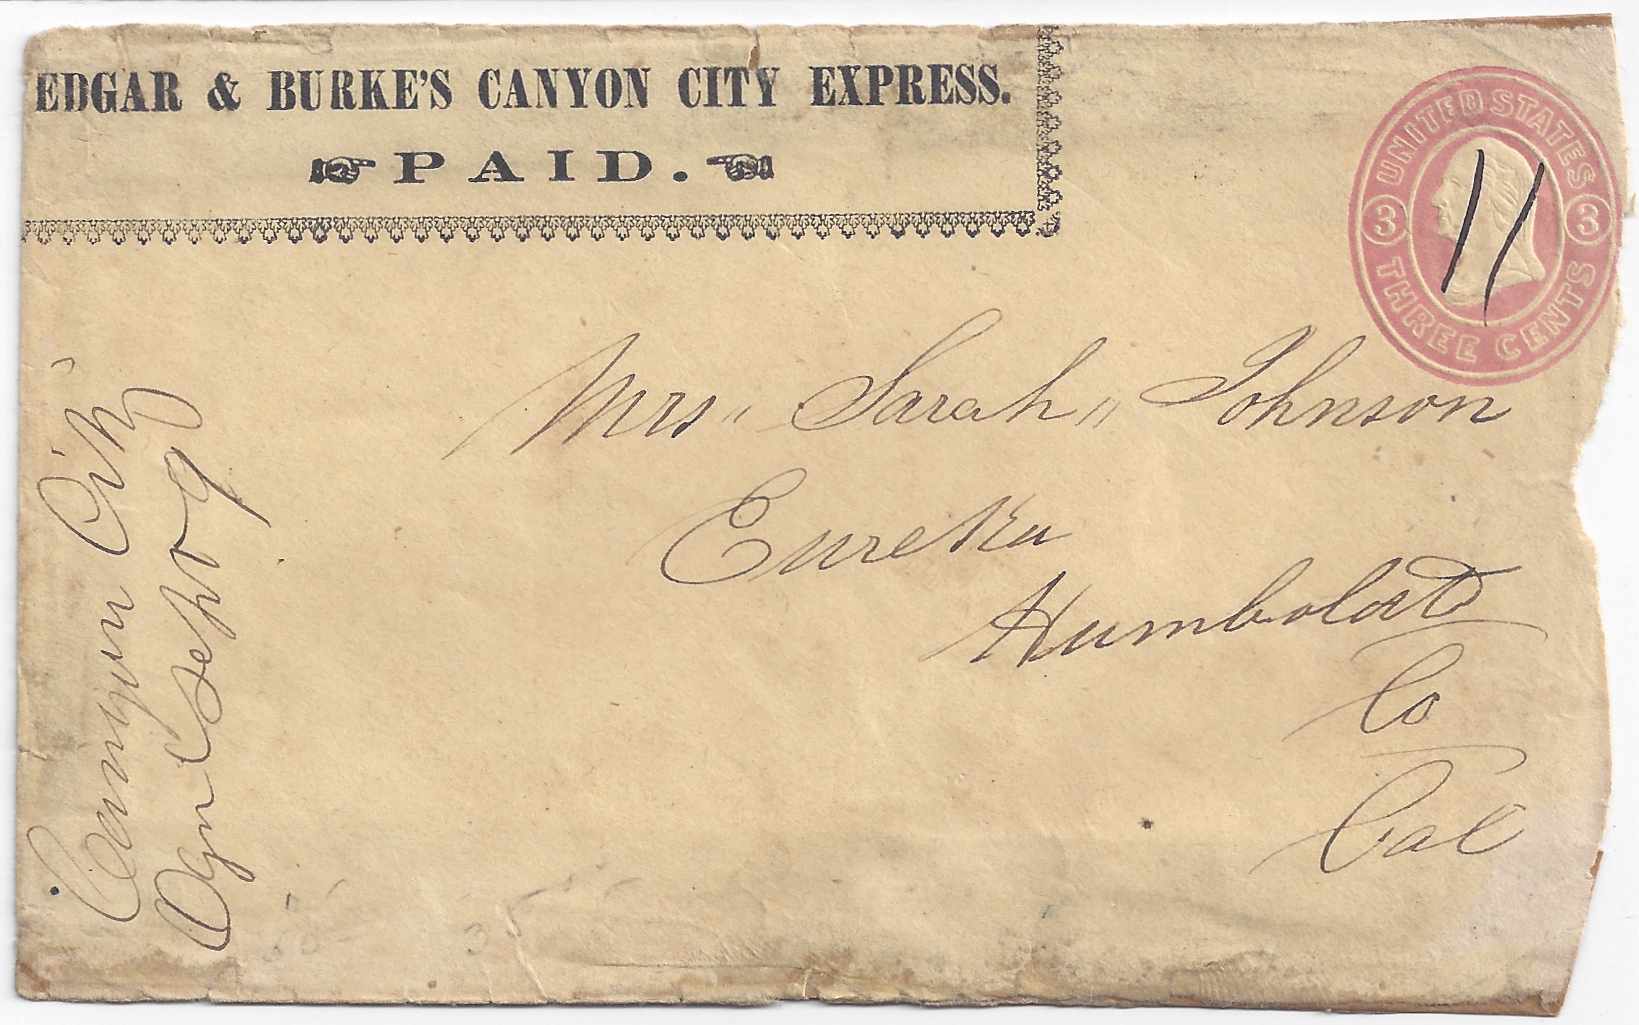 EDGAR & BURKE'S CANYON CITY EXPRESS.
PAID.
UNITED STATES
3 3
THREE CENTS
Mrs" Sarah" Johnson
Eureka
Humboldt
Co
Cal
Canyon City
Ogn Sept 9
35